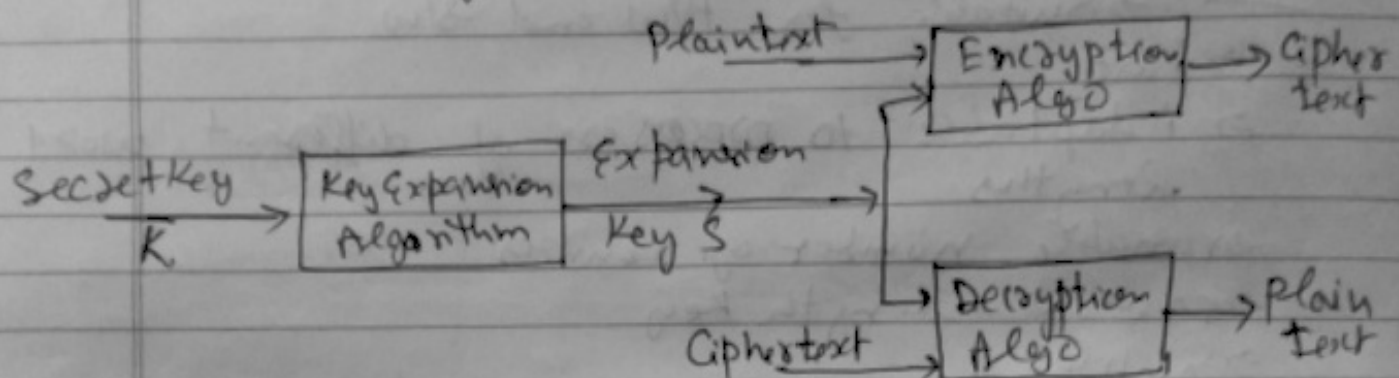 Plaintext
Encryption
Algo
Cipher
text
Secret Key
K
Key Expansion
Algorithm
Expansion
Key S
Ciphertext
Decryption
Algo
Plain
text